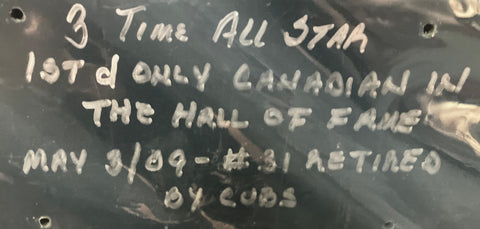 3 TIME ALL STAR
1ST & ONLY CANADIAN IN
THE HALL OF FAME
MAY 3/09 - #31 RETIRED
BY CUBS